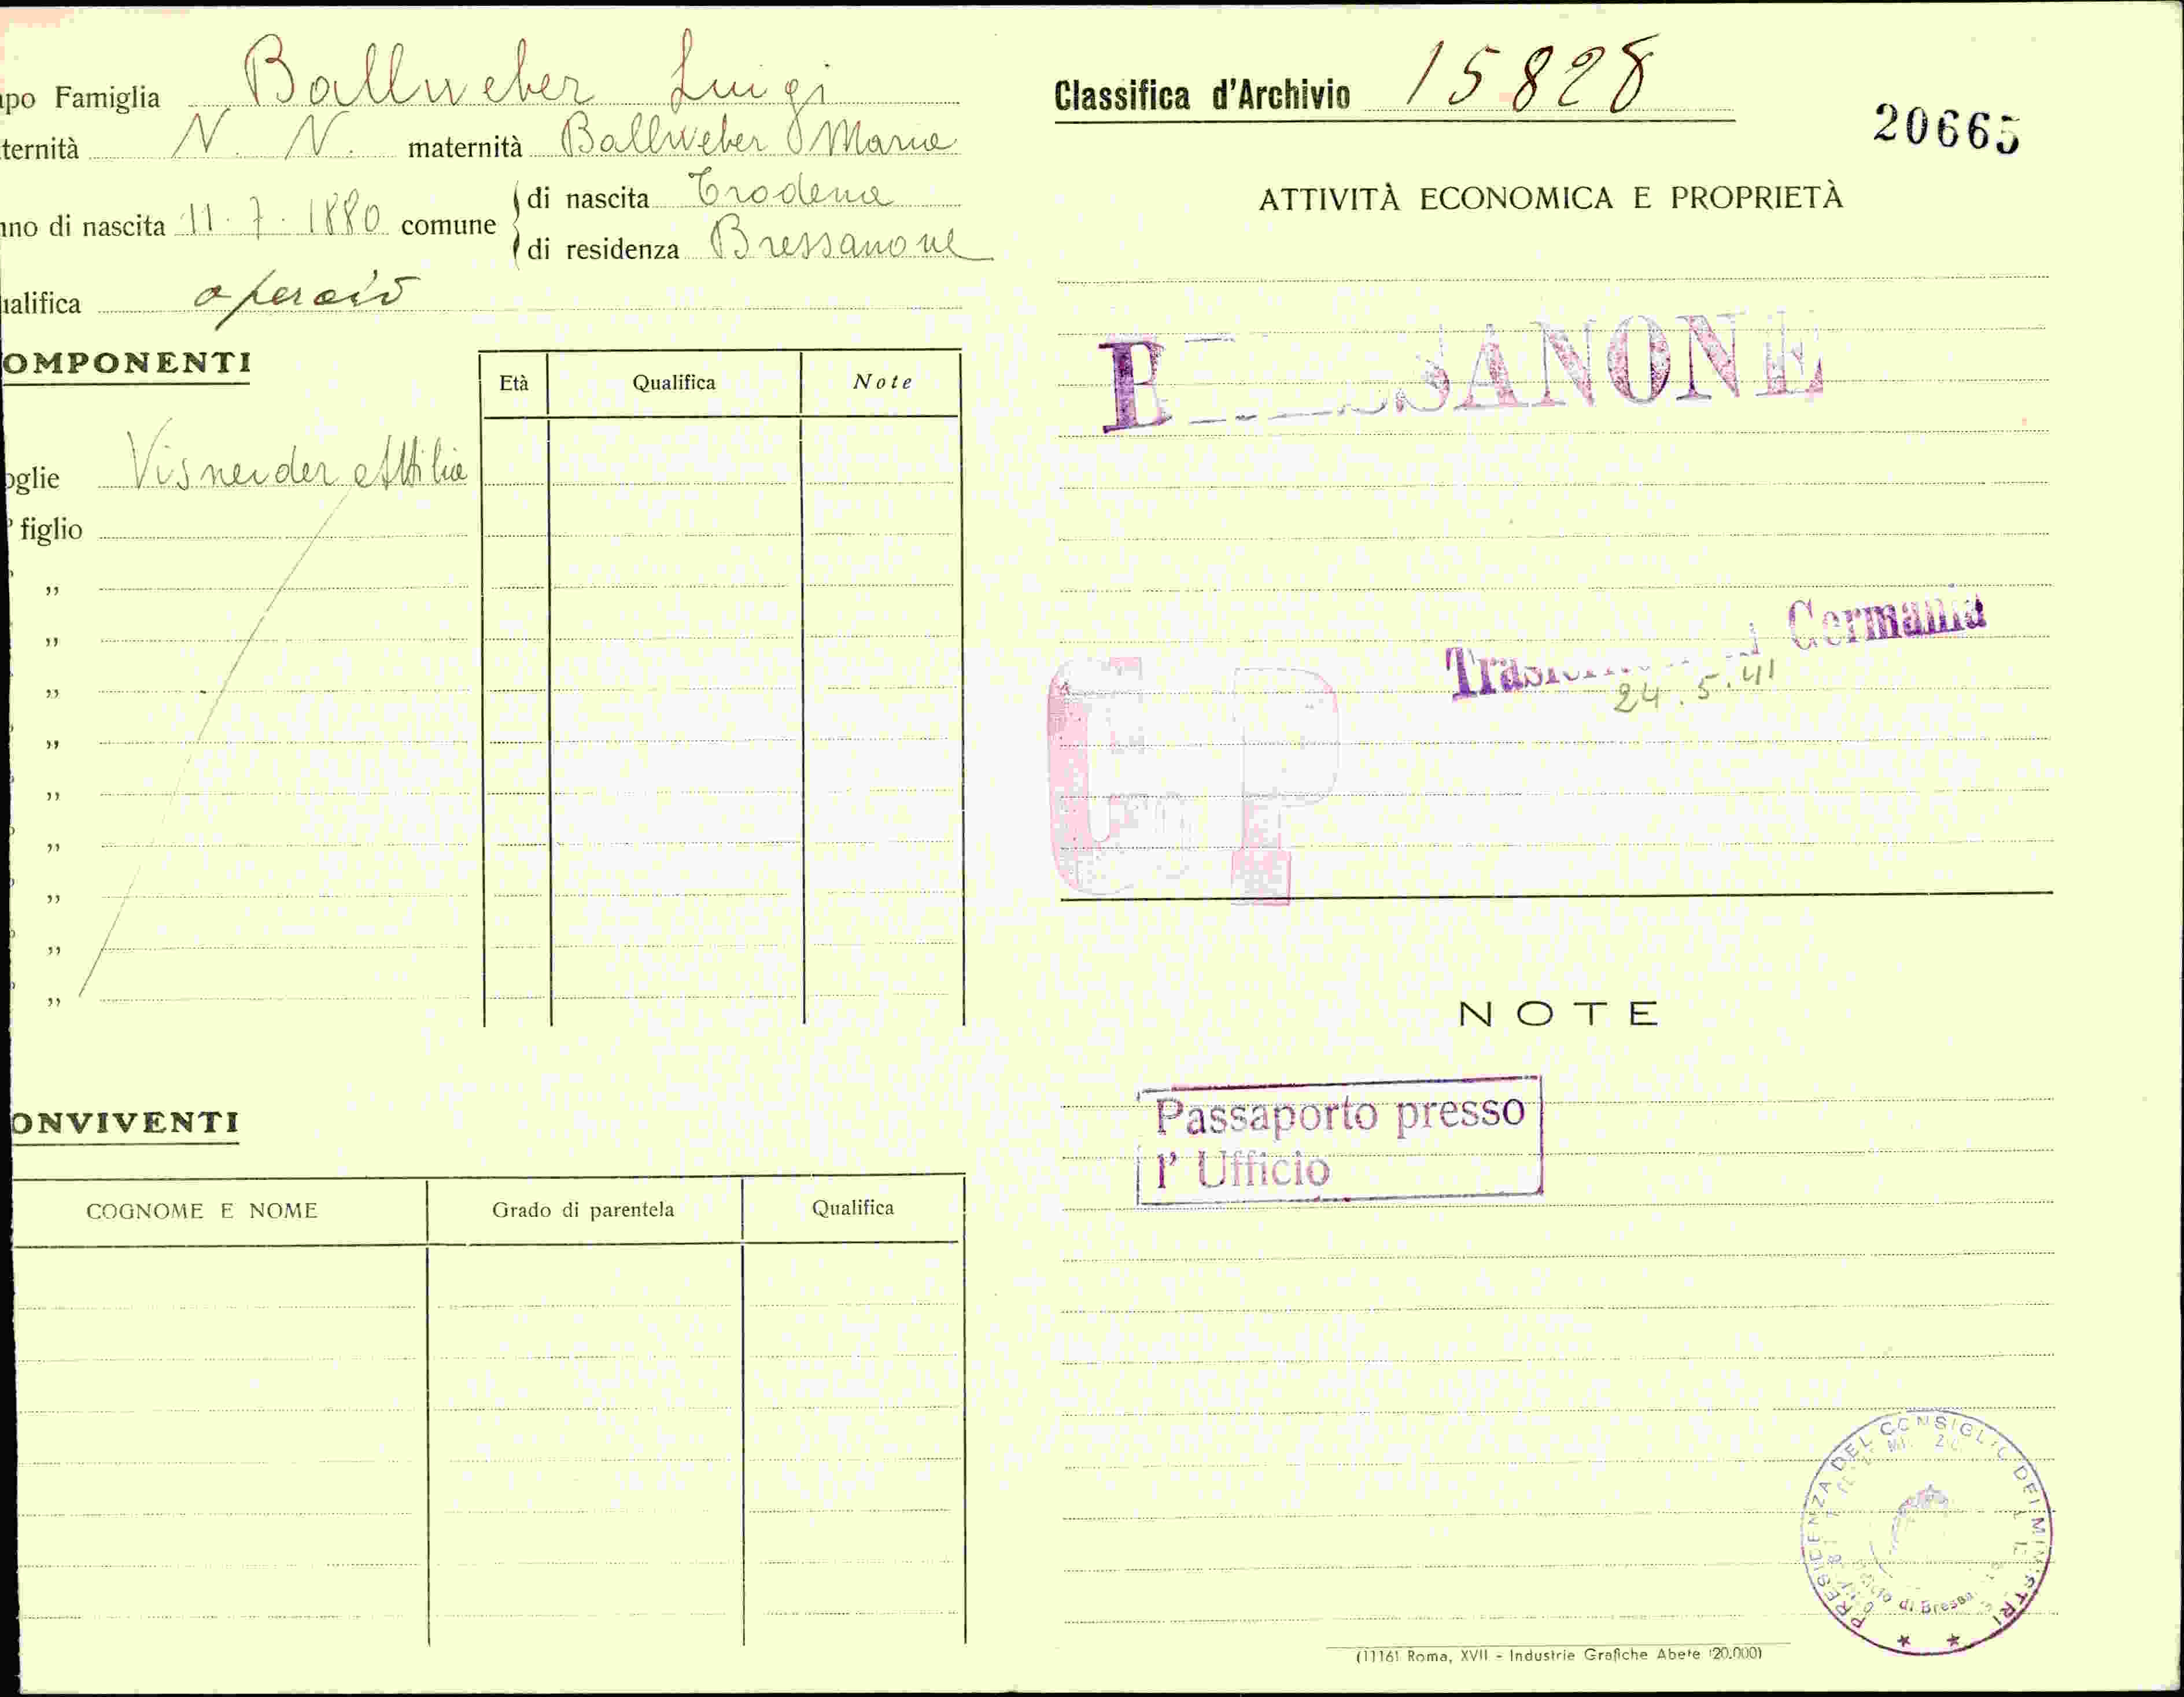 apo Famiglia Ballweber Luigi
ternità N. N. maternità Ballweber Maria
nno di nascita 11.7.1880 comune di nascita Trodena
di residenza Bressanone
ualifica operaio
OMPONENTI
Età Qualifica Note
oglie Visneider Attilia
figlio
"
"
"
"
"
"
"
"
"
ONVIVENTI
COGNOME E NOME Grado di parentela Qualifica
Classifica d'Archivio 15828
20665
ATTIVITÀ ECONOMICA E PROPRIETÀ
BRESSANONE
Germania
24.5.41
NOTE
Passaporto presso
l' Ufficio
PRESIDENZA DEL CONSIGLIO DEI MINISTRI
(11161 Roma, XVII - Industrie Grafiche Abete (20.000)